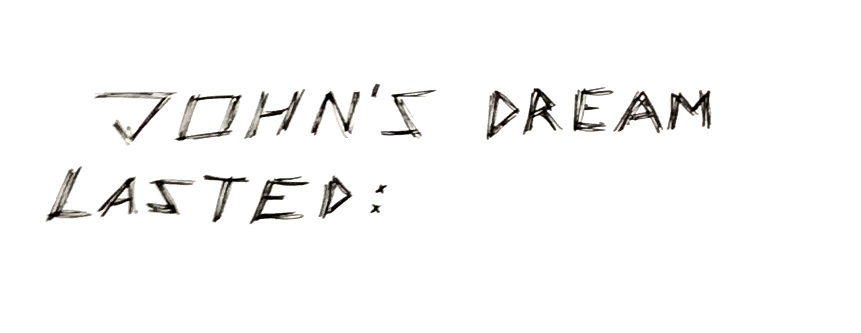 JOHN'S DREAM
LASTED: